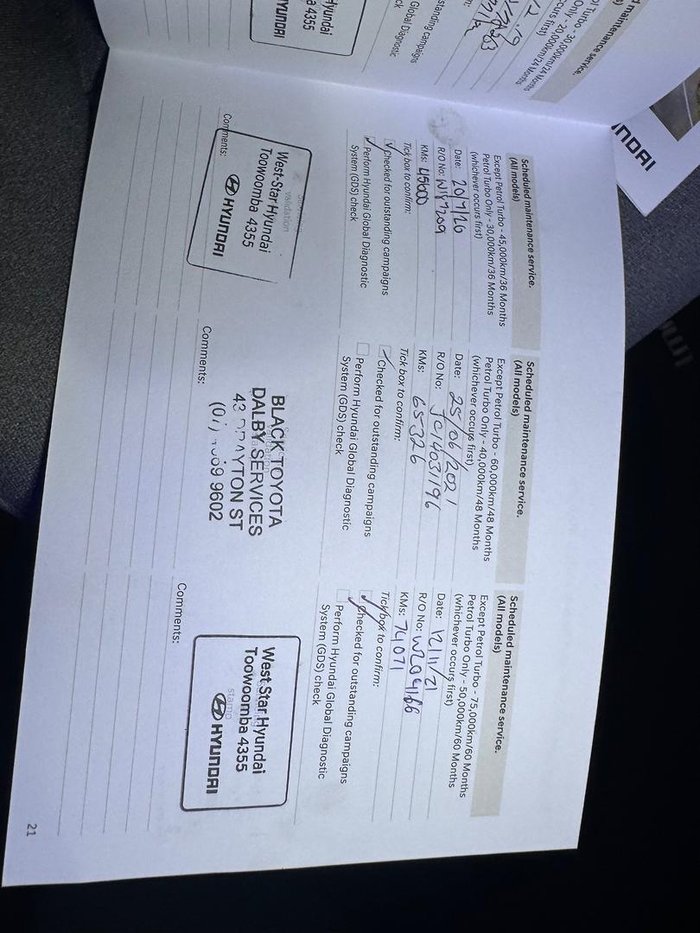 Scheduled maintenance service.
(All models)
Except Petrol Turbo - 45,000km/36 Months
Petrol Turbo Only - 30,000km/36 Months
(whichever occurs first)
Date: 20/7/20
R/O No: W187209
KMs: 45000
Tick box to confirm:
Checked for outstanding campaigns
Perform Hyundai Global Diagnostic
System (GDS) check
validation
West-Star Hyundai
Toowoomba 4355
HYUNDAI
Comments:
Scheduled maintenance service.
(All models)
Except Petrol Turbo - 60,000km/48 Months
Petrol Turbo Only - 40,000km/48 Months
(whichever occurs first)
Date: 25/06/2021
R/O No: JC14031196
KMs: 65326
Tick box to confirm:
Checked for outstanding campaigns
Perform Hyundai Global Diagnostic
System (GDS) check
BLACK TOYOTA
DALBY SERVICES
43 DRAYTON ST
9602
Comments:
Scheduled maintenance service.
(All models)
Except Petrol Turbo - 75,000km/60 Months
Petrol Turbo Only - 50,000km/60 Months
(whichever occurs first)
Date: 12/11/21
R/O No: W204166
KMs: 74071
Tick box to confirm:
Checked for outstanding campaigns
Perform Hyundai Global Diagnostic
System (GDS) check
West Star Hyundai
Toowoomba 4355
stamp
HYUNDAI
Comments:
21
maintenance service.
Turbo - 30,000km/24 Months
Only - 20,000km/24 Months
occurs first)
standing campaigns
Global Diagnostic
ck
Hyundai
4355
HYUNDAI